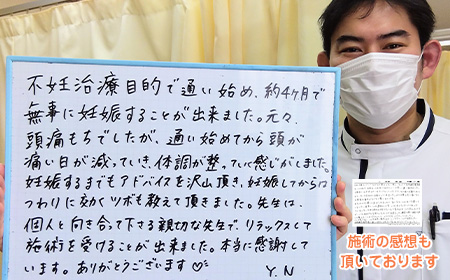 不妊治療目的で通い始め、約4ヶ月で
無事に妊娠することが出来ました。元々、
頭痛もちでしたが、通い始めてから頭が
痛い日が減っていき、体調が整っていく感じがしました。
妊娠するまでもアドバイスを沢山頂き、妊娠してからは
つわりに効くツボも教えて頂きました。先生は、
個人と向き合って下さる親切な先生で、リラックスして
施術を受けることが出来ました。本当に感謝して
います。ありがとうございます♡
Y.N
施術の感想も
頂いております